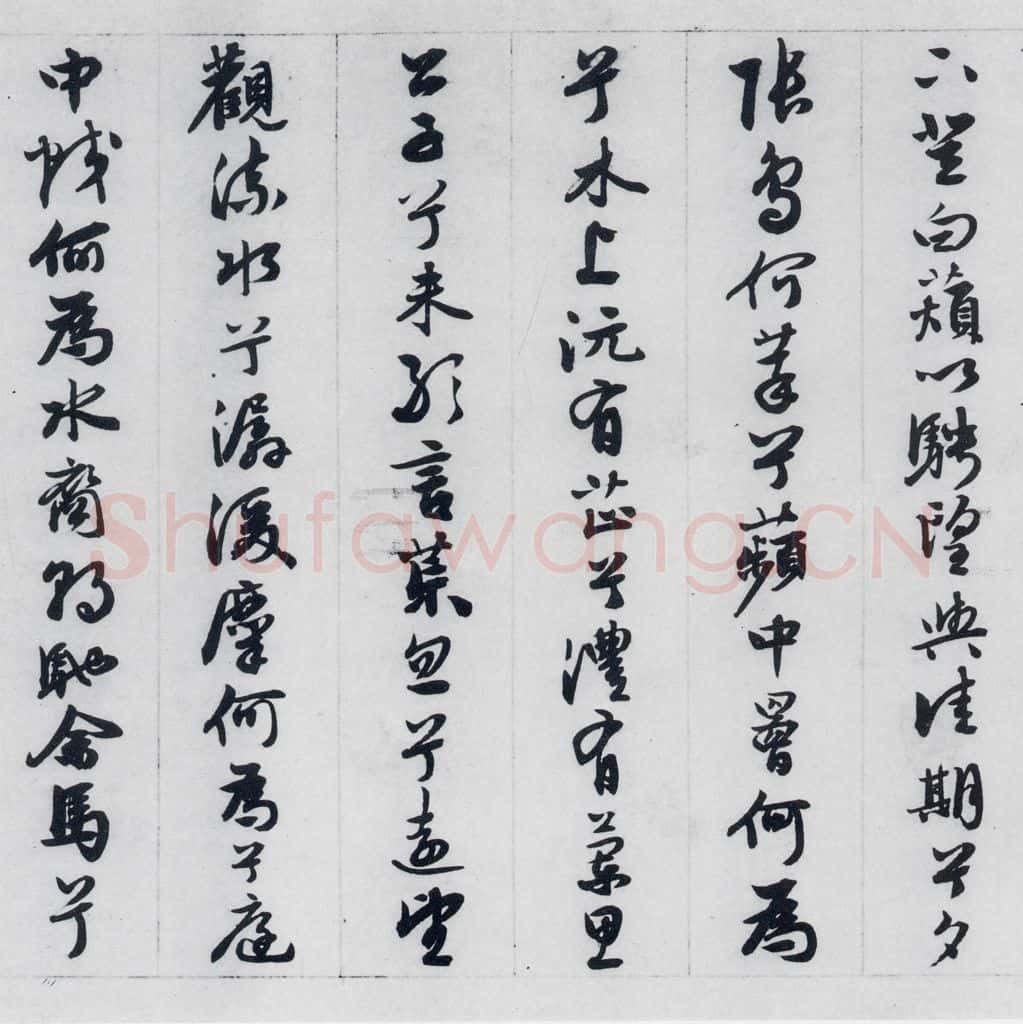 下登白薠以騁望與佳期兮夕
張鳥何萃兮蘋中罾何為
兮木上沅有芷兮澧有蘭思
公子兮未敢言荒忽兮遠望
觀流水兮潺湲麋何為兮庭
中蛟何為水裔朝馳余馬兮
Shufawang.CN